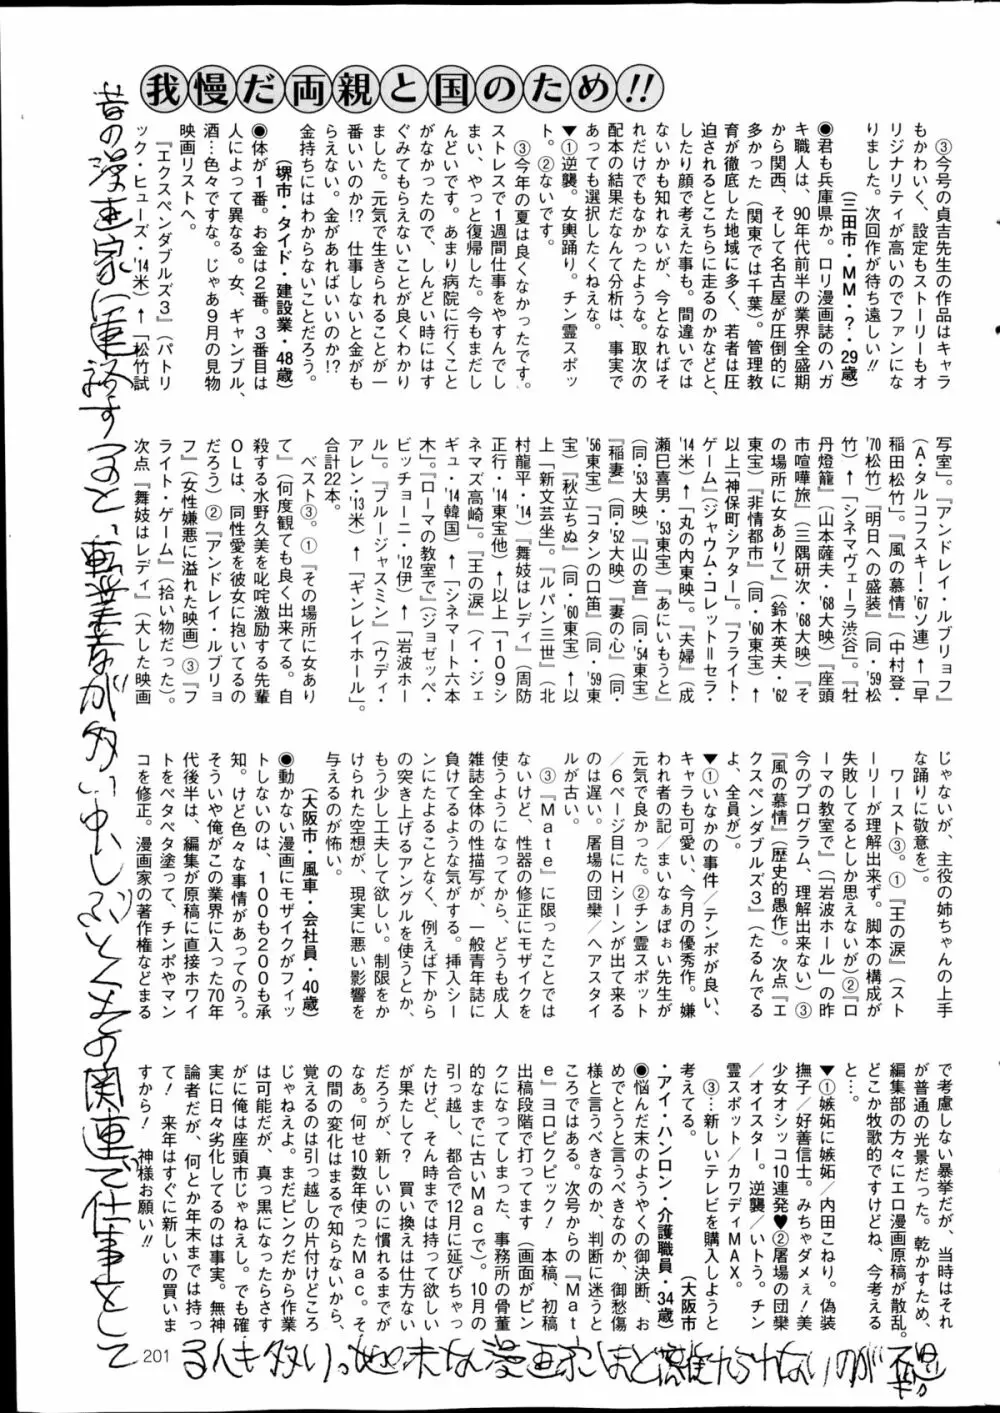 我慢だ両親と国のため!!
③今号の貞吉先生の作品はキャラ
もかわいく、設定もストーリーもオ
リジナリティが高いのでファンにな
りました。次回作が待ち遠しい!!
(三田市・MM・?・29歳)
●君も兵庫県か。ロリ漫画誌のハガ
キ職人は、90年代前半の業界全盛期
から関西、そして名古屋が圧倒的に
多かった(関東では千葉)。管理教
育が徹底した地域に多く、若者は圧
迫されるとこちらに走るのかなどと、
したり顔で考えた事も。間違いでは
ないかも知れないが、今となればそ
れだけでもなかったような。取次の
配本の結果だなんて分析は、事実で
あっても選択したくねえな。
▼①逆襲。女輿踊り。チン霊スポッ
ト。②ないです。
③今年の夏は良くなかったです。
ストレスで1週間仕事をやすんでし
まい、やっと復帰した。今もまだし
んどいです。あまり病院に行くこと
がなかったので、しんどい時にはす
ぐみてもらえないことが良くわかり
ました。元気で生きられることが一
番いいのか!? 仕事しないと金がも
らえない。金があればいいのか!?
金持ちにはわからないことだろう。
(堺市・タイド・建設業・48歳)
●体が1番。お金は2番。3番目は
人によって異なる。女、ギャンブル、
酒…色々ですな。じゃあ9月の見物
映画リストへ。
『エクスペンダブルズ3』(パトリ
ック・ヒューズ・'14米)↑「松竹試
写室」。『アンドレイ・ルブリョフ』
(A・タルコフスキー・'67ソ連)↑「早
稲田松竹」。『風の慕情』(中村登・
'70松竹)『明日への盛装』(同・'59松
竹)↑「シネマヴェーラ渋谷」。『牡
丹燈籠』(山本薩夫・'68大映)『座頭
市喧嘩旅』(三隅研次・'68大映)『そ
の場所に女ありて』(鈴木英夫・'62
東宝)『非情都市』(同・'60東宝)↑
以上「神保町シアター」。『フライト・
ゲーム』(ジャウム・コレット=セラ・
'14米)↑「丸の内東映」。『夫婦』(成
瀬巳喜男・'53東宝)『あにいもうと』
(同・'53大映)『山の音』(同・'54東宝)
『稲妻』(同・'52大映)『妻の心』(同・
'56東宝)『コタンの口笛』(同・'59東
宝)『秋立ちぬ』(同・'60東宝)↑以
上「新文芸坐」。『ルパン三世』(北
村龍平・'14)『舞妓はレディ』(周防
正行・'14東宝他)↑以上「109シ
ネマズ高崎」。『王の涙』(イ・ジェ
ギュ・'14韓国)↑「シネマート六本
木」。『ローマの教室で』(ジョゼッペ・
ピッチョーニ・'12伊)↑「岩波ホー
ル」。『ブルージャスミン』(ウディ・
アレン・'13米)↑「ギンレイホール」。
合計22本。
ベスト③。①『その場所に女あり
て』(何度観ても良く出来てる。自
殺する水野久美を叱咤激励する先輩
OLは、同性愛を彼女に抱いてるの
だろう)②『アンドレイ・ルブリョ
フ』(女性嫌悪に溢れた映画)③『フ
ライト・ゲーム』(拾い物だった)。
次点『舞妓はレディ』(大した映画
じゃないが、主役の姉ちゃんの上手
な踊りに敬意を)。
ワースト③。①『王の涙』(スト
ーリーが理解出来ず。脚本の構成が
失敗してるとしか思えないが)②『ロ
ーマの教室で』(「岩波ホール」の昨
今のプログラム、理解出来ない)③
『風の慕情』(歴史的愚作)。次点『エ
クスペンダブルズ3』(たるんでる
よ、全員が)。
▼①いなかの事件/テンポが良い、
キャラも可愛い、今月の優秀作。嫌
われ者の記/まいなぁぼぉい先生が
元気で良かった。②チン霊スポット
/6ページ目にHシーンが出て来る
のは遅い。屠場の団欒/ヘアスタイ
ルが古い。
③『Mate』に限ったことでは
ないけど、性器の修正にモザイクを
使うようになってから、どうも成人
雑誌全体の性描写が、一般青年誌に
負けてるような気がする。挿入シー
ンにたよることなく、例えば下から
の突き上げるアングルを使うとか、
もう少し工夫して欲しい。制限をか
けられた空想が、現実に悪い影響を
与えるのが怖い。
(大阪市・風車・会社員・40歳)
●動かない漫画にモザイクがフィッ
トしないのは、100も200も承
知。けど色々な事情があってのう。
そういや俺がこの業界に入った70年
代後半は、編集が原稿に直接ホワイ
トをペタペタ塗って、チンポやマン
コを修正。漫画家の著作権などまる
で考慮しない暴挙だが、当時はそれ
が普通の光景だった。乾かすため、
編集部の方々にエロ漫画原稿が散乱。
どこか牧歌的ですけどね、今考える
と…。
▼①嫉妬に嫉妬/内田こねり。偽装
撫子/好善信士。みちゃダメぇ!美
少女オシッコ10連発♥②屠場の団欒
/オイスター。逆襲/いトう。チン
霊スポット/カワディMAX。
③…新しいテレビを購入しようと
考えてる。
(大阪市・アイ・ハンロン・介護職員・34歳)
●悩んだ末のようやくの御決断、お
めでとうと言うべきなのか、御愁傷
様と言うべきなのか、判断に迷うと
ころではある。次号からの『Mat
e』ヨロピクピック! 本稿、初稿
出稿段階で打ってます(画面がピン
クになってしまった、事務所の骨董
的なまでに古いMacで)。10月の
引っ越し、都合で12月に延びちゃっ
たけど、そん時までは持って欲しい
が果たして? 買い換えは仕方ない
だろうが、新しいのに慣れるまでが
なあ。何せ10数年使ったMac。そ
の間の変化はまるで知らないから、
覚えるのは引っ越しの片付けどころ
じゃねえよ。まだピンクだから作業
は可能だが、真っ黒になったらさす
がに俺は座頭市じゃねえし。でも確
実に日々劣化してるのは事実。無神
論者だが、何とか年末までは持っ
て! 来年はすぐに新しいの買いま
すから! 神様お願い!!
昔の漫画家に電話すると、転業者が多い中しぶとくその関連で仕事をして
るんも多い。如来な漫画家ほど離れられないのが
201